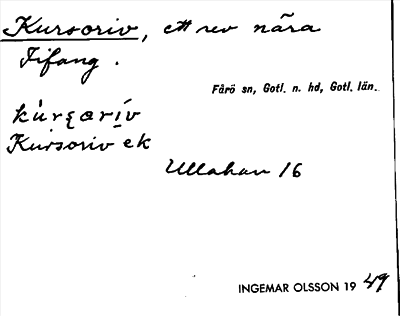 Kursoriv, ett rev nära
Fifang.
Fårö sn, Gotl. n. hd, Gotl. län.
kùrs̨ơrív
Kursoriv ek
Ullahau 16
INGEMAR OLSSON 1949